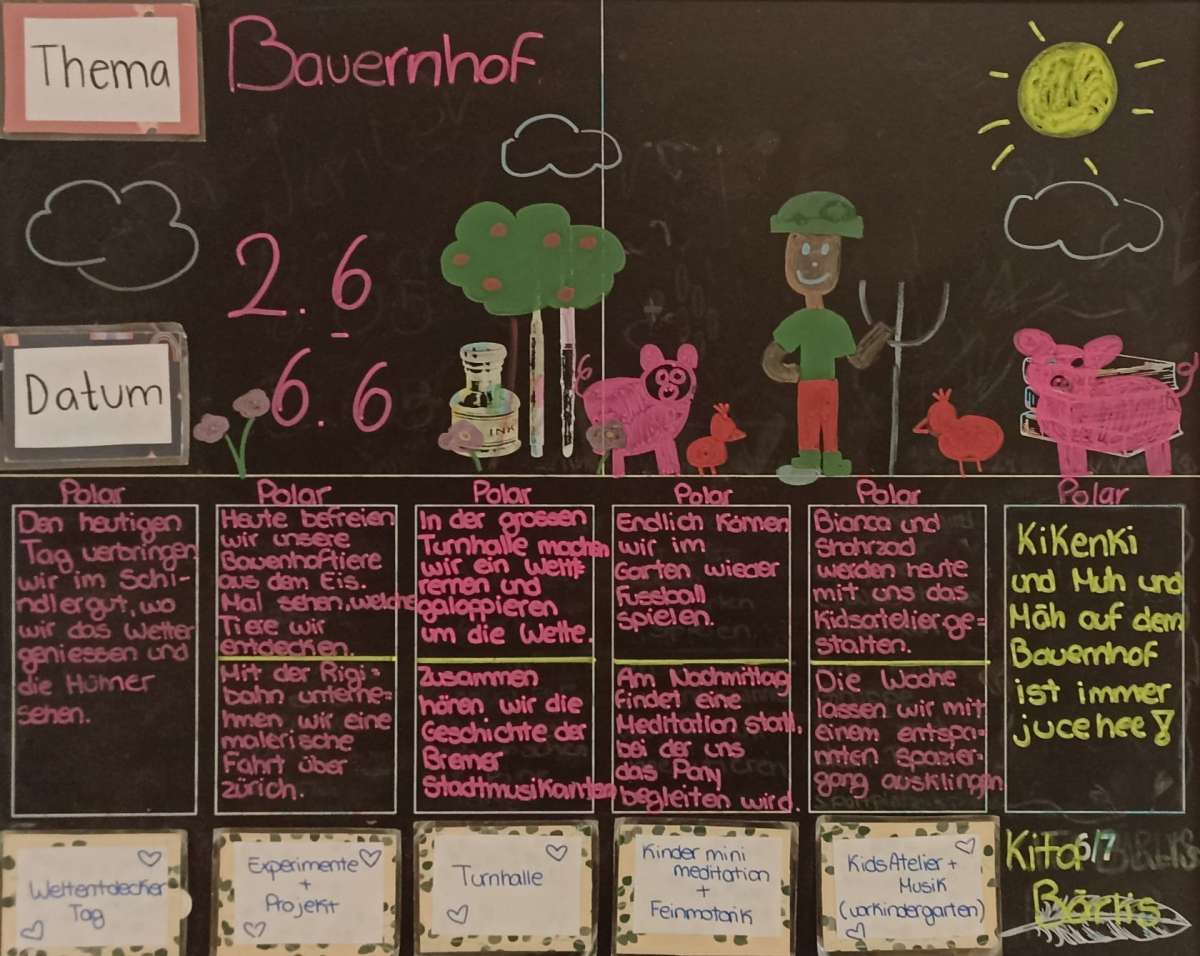 Thema
Bauernhof
2.6
6.6
Datum
INK
Polar
Den heutigen
Tag verbringen
wir im Schi-
ndlergut, wo
wir das Wetter
geniessen und
die Hühner
sehen.
Weltentdecker
Tag
Polar
Heute befreien
wir unsere
Bauenhoftiere
aus dem Eis.
Mal sehen, welche
Tiere wir
entdecken.
Mit der Rigi-
bahn unterne-
hmen wir eine
malerische
Fahrt über
zürich.
Experimente
+
Projekt
Polar
In der grossen
Turnhalle machen
wir ein Wett-
rennen und
galoppieren
um die Wette.
Zusammen
hören wir die
Geschichte der
Bremer
Stadtmusikanten
Turnhalle
Polar
Endlich können
wir im
Garten wieder
Fussball
spielen.
Am Nachmittag
findet eine
Meditation statt,
bei der uns
das Pony
begleiten wird.
Kinder mini
meditation
+
Feinmotorik
Polar
Bianca und
Shahrzad
werden heute
mit uns das
Kidsatelier ge=
stalten.
Die Woche
lassen wir mit
einem entspa-
nnten Spazier-
gang ausklingen
Kids Atelier +
Musik
(vorkindergarten)
Polar
KiKenKi
und Muh und
Mäh auf dem
Bauernhof
ist immer
jucehee!
Kita 6/7
Bärlis